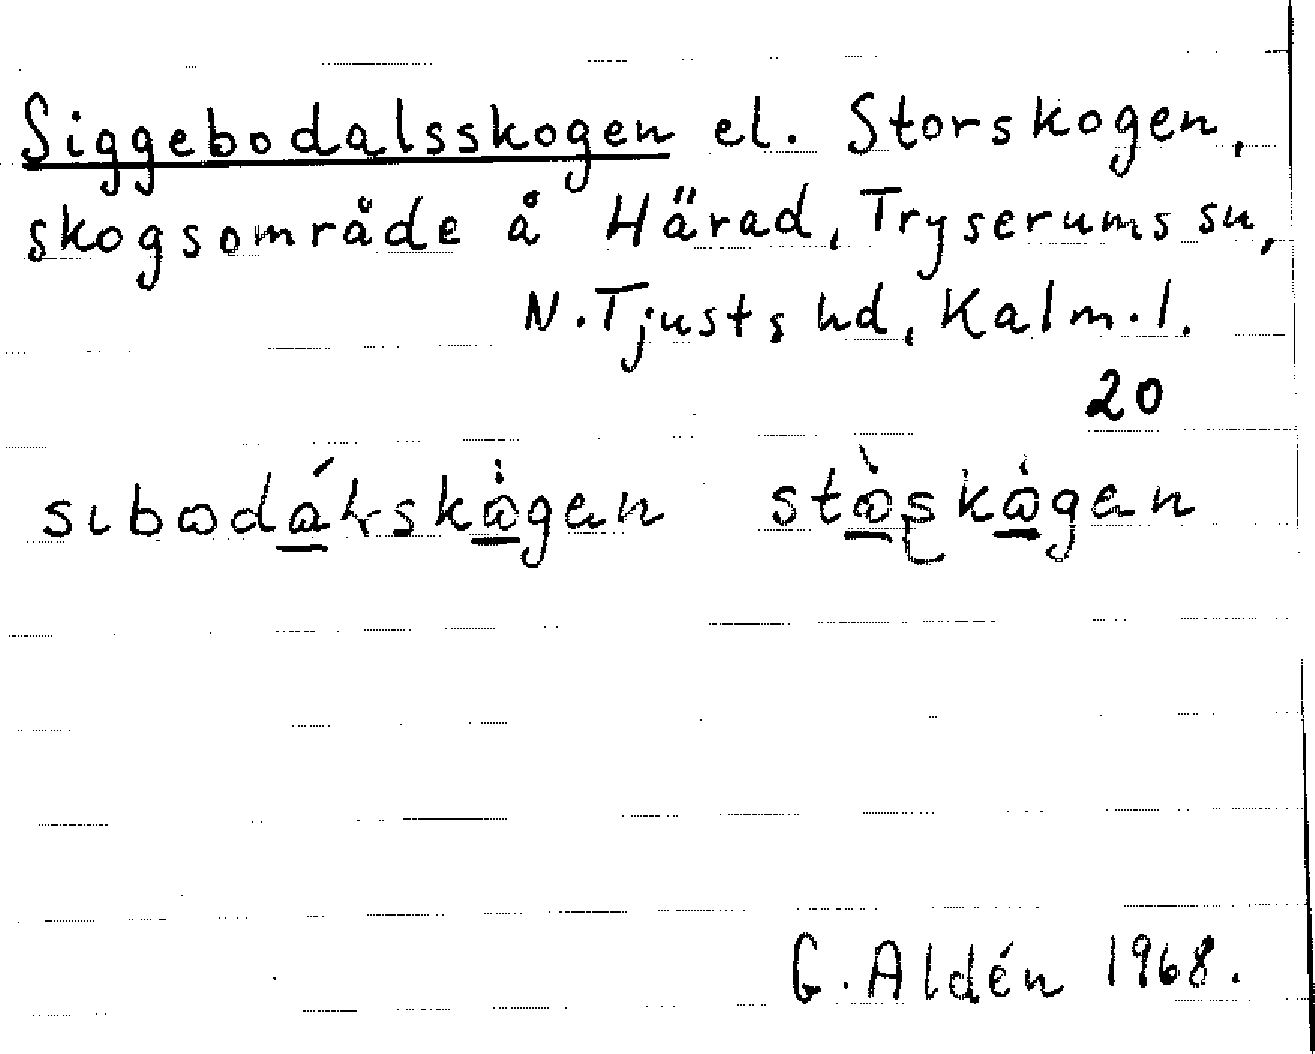 Siggebodalsskogen el. Storskogen,
skogsområde å Härad, Tryserums sn,
N. Tjusts hd, Kalm. l.
20
G. Aldén 1968.